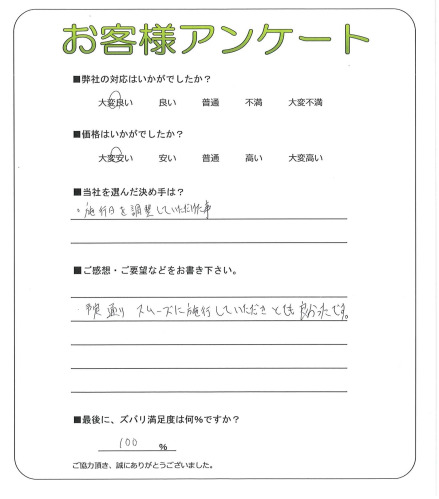 お客様アンケート
■弊社の対応はいかがでしたか？
大変良い 良い 普通 不満 大変不満
■価格はいかがでしたか？
大変安い 安い 普通 高い 大変高い
■当社を選んだ決め手は？
。施行日を調整していただけた事
■ご感想・ご要望などをお書き下さい。
予定通り スムーズに施行していただきとても良かったです。
■最後に、ズバリ満足度は何%ですか？
100 %
ご協力頂き、誠にありがとうございました。